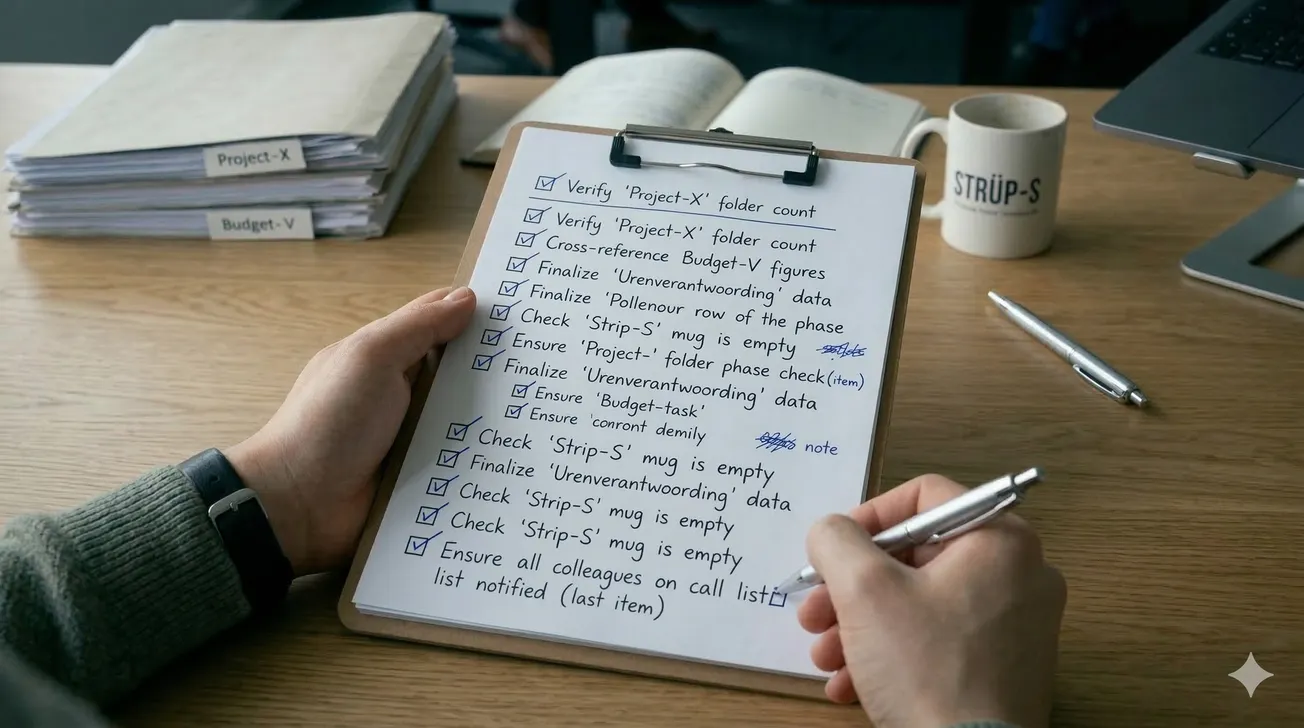 Project-X
Budget-V
STRÜP-S
Verify 'Project-X' folder count
Verify 'Project-X' folder count
Cross-reference Budget-V figures
Finalize 'Urenverantwoording' data
Finalize 'Pollenour row of the phase
Check 'Strip-S' mug is empty
Ensure 'Project-' folder phase check (item)
Finalize 'Urenverantwoording' data
Ensure 'Budget-task'
Ensure 'conront demily
note
Check 'Strip-S' mug is empty
Finalize 'Urenverantwoording' data
Check 'Strip-S' mug is empty
Check 'Strip-S' mug is empty
Ensure all colleagues on call list
list notified (last item)